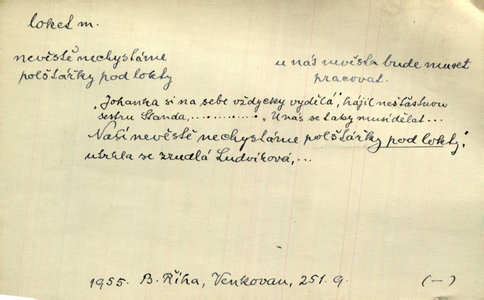 loket m.
nevěstě nechystáme
polštářky pod lokty
u nás nevěsta bude muset
pracovat.
„Johanka si na sebe vždycky vydělá", hájil nešťastnou
sestru Standa, ............ „U nás se taky musí dělat...
Naší nevěstě nechystáme polštářky pod lokty,"
utrhla se zrudlá Ludvíková,...
1955. B. Říha, Venkovan, 251.9. (-)